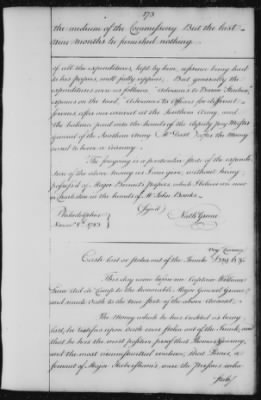 173
the medium of the Commissary But the last
two months he furnished nothing
of all the expenditures kept by him, reference being had
to his papers, will fully appear. But generally the
expenditures were as follows Advances to Baron Steuben,
expences on the road, Advances to Officers for different
services after our arrival at the Southern Army, and
the balance paid into the hands of the deputy pay Master
general of the Southern Army
will to been a
The foregoing is a particular state of the expendi-
ture of the above money as I can give, without being
possessed of Major Burnet's papers, which I believe are now
in Charleston in the hands of Mr John Banks
Signed
Nath Greene
Philadelphia
Novemr 1st 1783
Cash lost or stolen out of the Trunk
This day came before me Captain William
Aid de Camp to the Honorable Major General Greene
and made Oath to the true state of the above Account.
The Money which he has credited as being
lost, he testifies upon Oath were stolen out of the Trunk, and
that he has the most positive proof that Thomas
and the most circumstantial evidence, that
servant of Major Forsyth's, were the Persons who